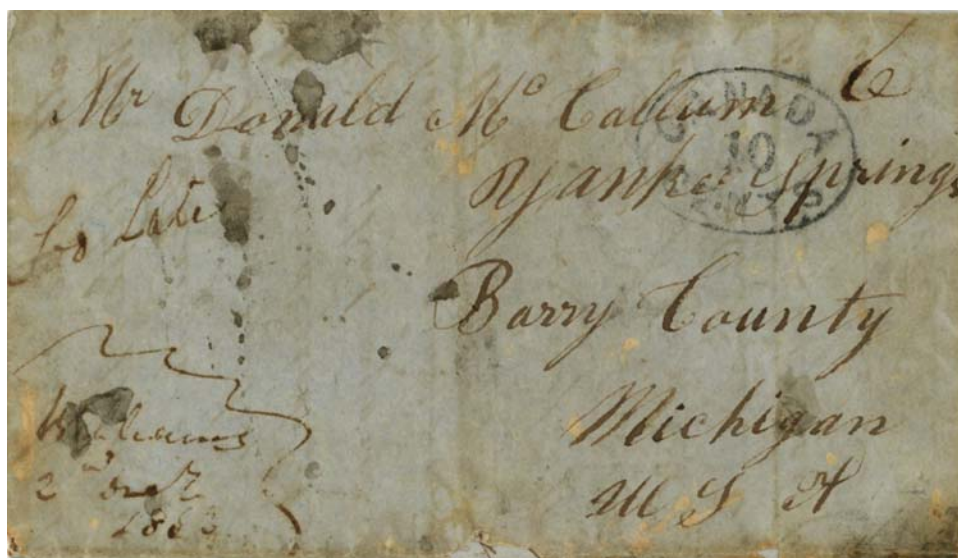 Mr Donald Mc Callum
CANADA
10
CENTS
Yankee Springs
Late
Barry County
Michigan
U S A
Williams
2nd Oct
186